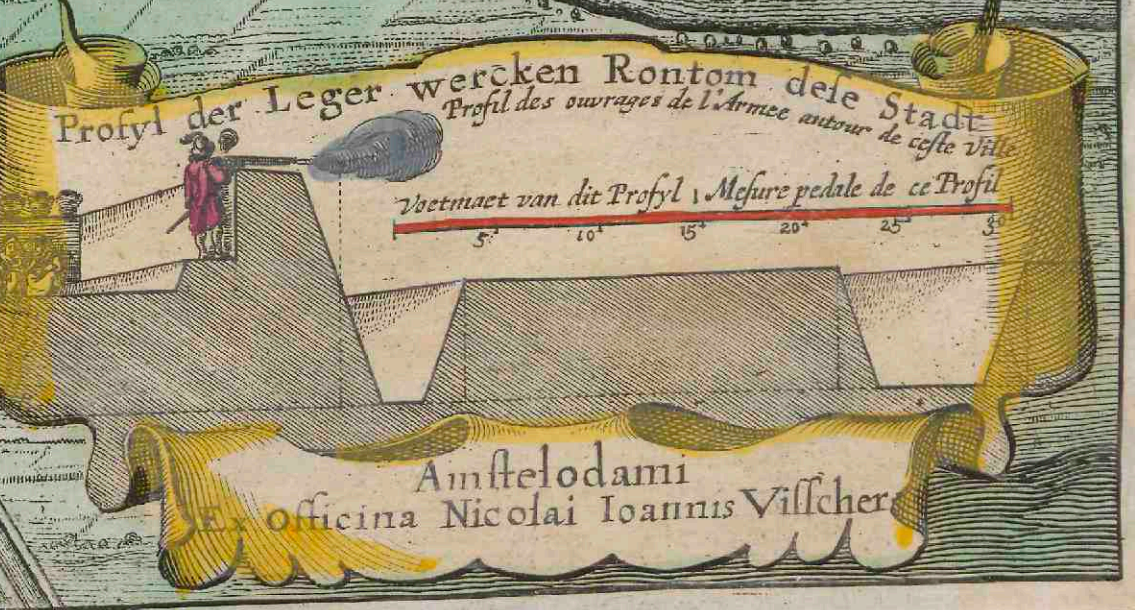 Profyl der Leger wercken Rontom deſe Stadt
Profil des ouvrages de l'Armee autour de ceſte Ville
Voetmaet van dit Profyl ; Meſure pedale de ce Profil
5 10 15 20 25 30
Amſtelodami
Ex Officina Nicolai Ioannis Viſſcheri